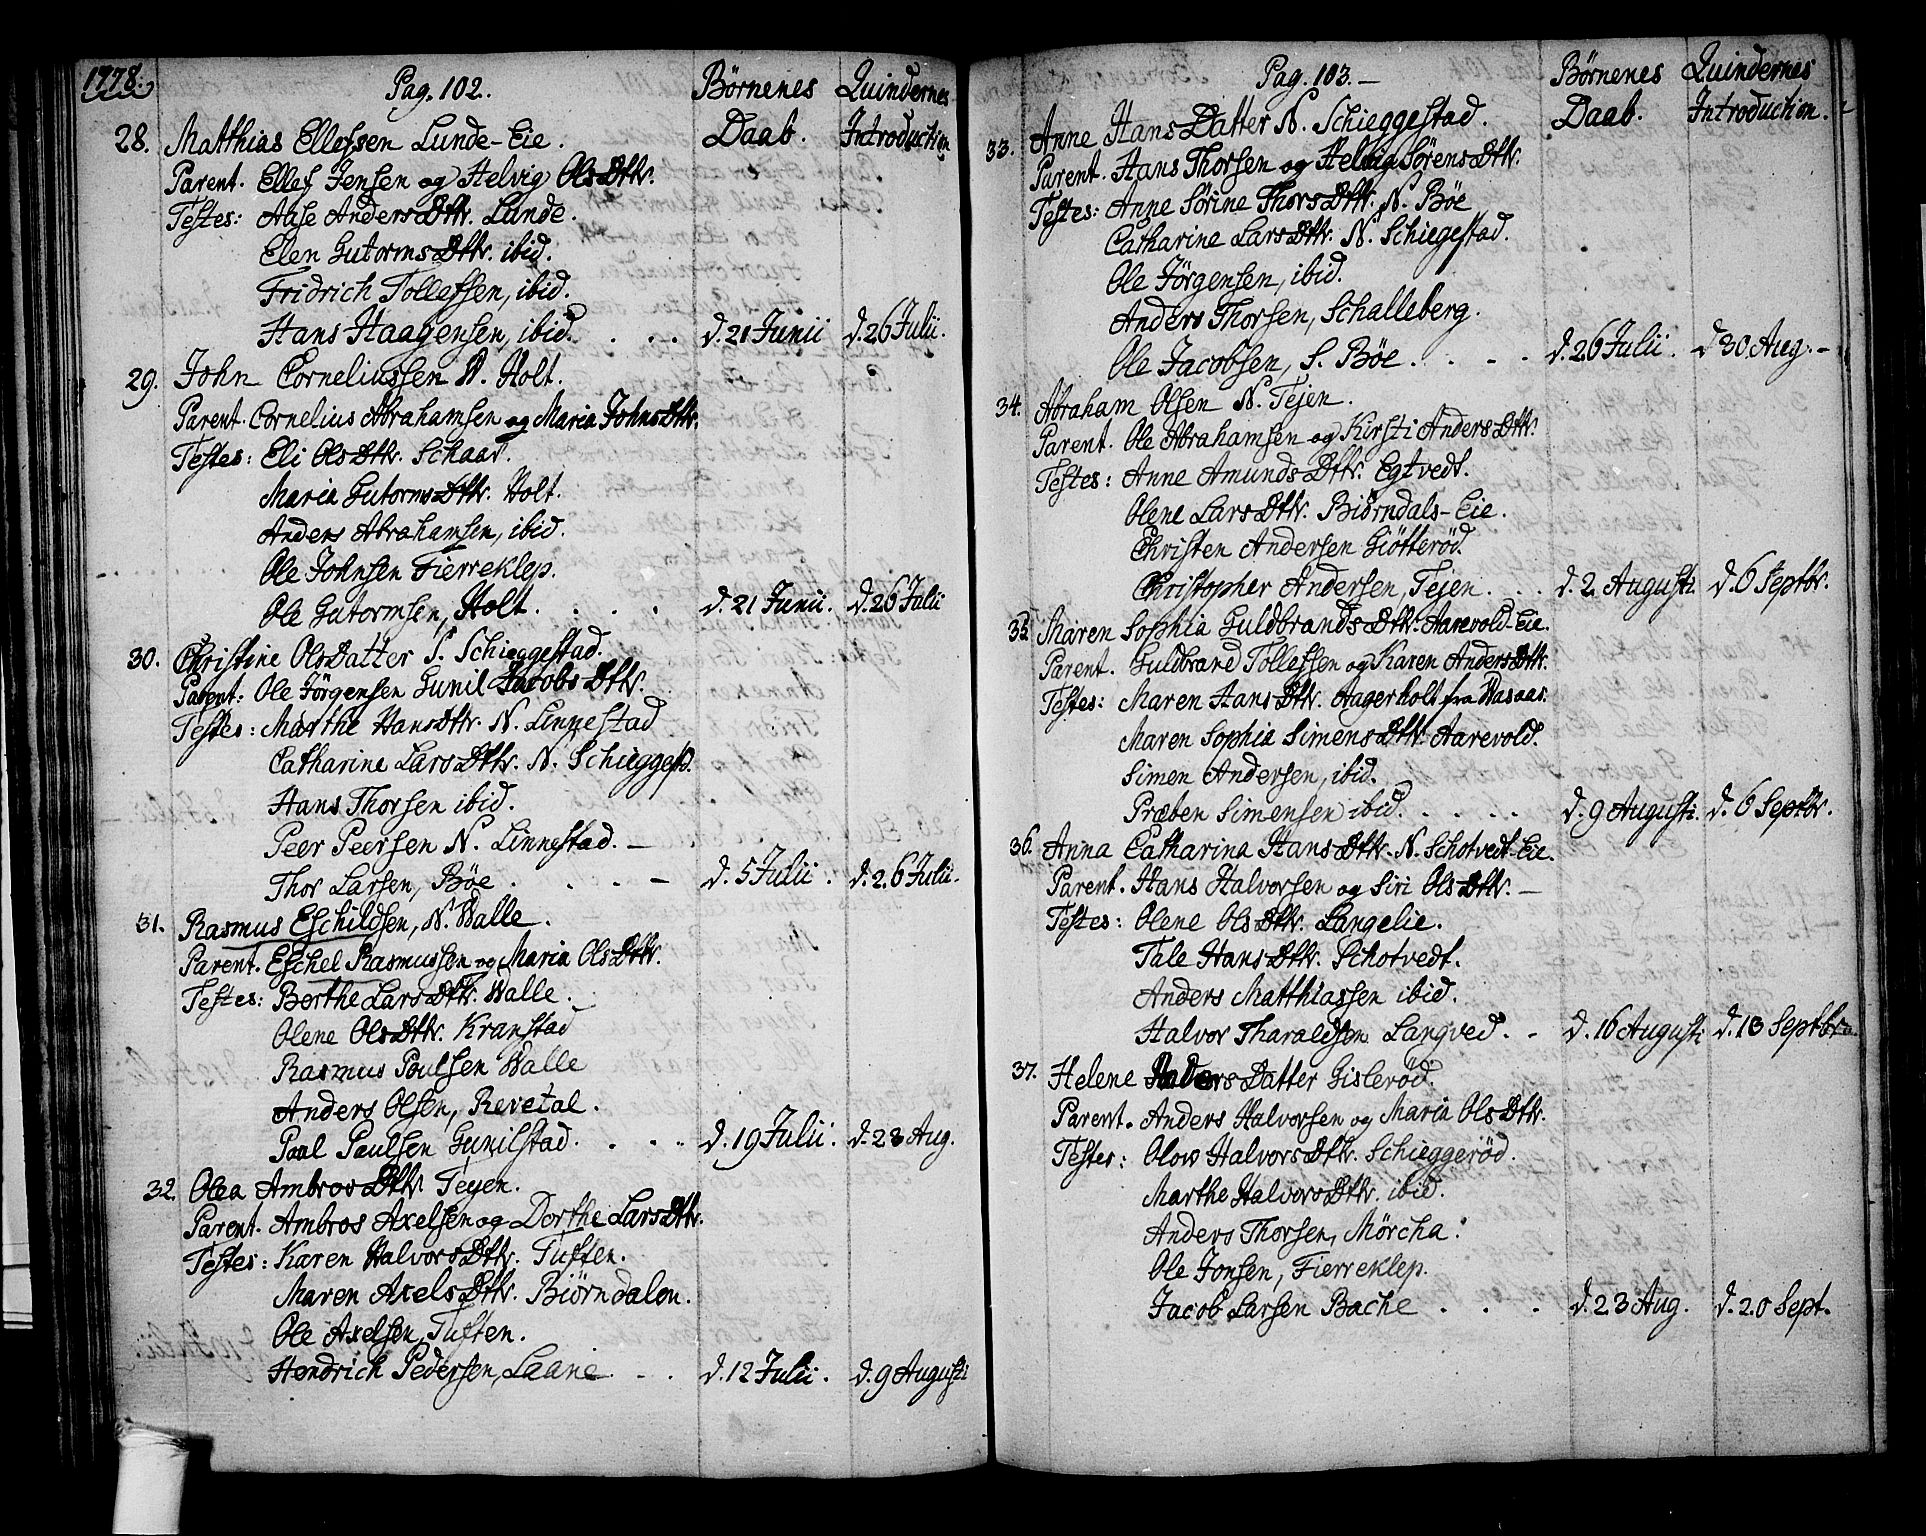 1778.
Pag. 102.
Börnenes Daab.
Quindernes Introduction
28. Matthias Ellefsen Lunde-Eie.
Parent. Ellef Jensen og Helvig OlsDttr.
Testes: Aase AndersDttr. Lunde.
Elen GutormsDttr. ibid.
Fridrich Tollefsen, ibid.
Hans Haagensen, ibid. . . . d. 21 Junii d. 26 Julii.
29. John Corneliussen N. Holt.
Parent. Cornelius Abrahamsen og Maria JohnsDttr.
Testes: Eli OlsDttr. Schaar.
Maria GutormsDttr. Holt.
Anders Abrahamsen, ibid.
Ole Johnsen Fierreklep.
Ole Gutormsen, Holt. . . . d. 21 Junii. d. 26 Julii
30. Christine OlsDatter S. Schieggestad.
Parent: Ole Jörgensen Gunil JacobsDttr.
Testes: Marthe HansDttr. N. Linnestad
Catharine LarsDttr. N. Schieggestd.
Hans Thorsen ibid.
Peer Peersen N. Linnestad. –
Thor Larsen, Böe . . . . – d. 5 Julii. d. 26 Julii.
31. Rasmus Eschildsen, N. Walle.
Parent. Eschel Rasmussen og Maria OlsDttr.
Testes: Berthe LarsDttr. Walle.
Olene OlsDttr. Kranstad
Rasmus Poulsen Walle
Anders Olsen, Revetal.
Paal Paulsen Gunilstad. . . . d. 19 Julii. d. 23 Aug.
32. Olea AmbrosDttr. Teyen.
Parent. Ambros Axelsen og Dorthe LarsDttr.
Testes: Karen HalvorsDttr. Tuften.
Maren AxelsDttr. Biörndalen.
Ole Axelsen, Tuften.
Hendrich Pedersen, Laane. . . d. 12 Julii. d. 9 Augusti
Pag. 103. –
Börnenes Daab.
Quindernes Introduction.
33. Anne HansDatter N. Schieggestad.
Parent. Hans Thorsen og Helvig SörensDttr.
Testes: Anne Sörine ThorsDttr. N. Böe
Catharine LarsDttr. N. Schiegestad.
Ole Jörgensen, ibid.
Anders Thorsen, Schalleberg.
Ole Jacobsen, S. Böe. . . . d. 26 Julii. d 30 Aug. –
34. Abraham Olsen N. Tejen.
Parent. Ole Abrahamsen og Kirsti AndersDttr.
Testes: Anne AmundsDttr. Egtvedt.
Olene LarsDttr. Biörndals-Eie.
Christen Andersen Giötteröd.
Christopher Andersen, Tejen. . . d. 2 Augusti. d. 6 Septbr.
35. Maren Sophia GuldbrandsDttr. Aarevold-Eie.
Parent. Guldbrand Tollefsen og Karen AndersDttr.
Testes: Maren HansDttr. Aagerholt fra Waasaas.
Maren Sophia SimensDttr. Aarevold.
Simen Andersen, ibid.
Præben Simensen ibid. . . . . d. 9 Augusti. d. 6 Septbr.
36. Anna Catharina HansDttr. N. Schotvedt-Eie.
Parent. Hans Halvorsen og Siri OlsDttr. –
Testes: Olene OlsDttr. Langelie.
Tale HansDttr. Schotvedt.
Anders Matthiassen ibid.
Halvor Tharaldsen Langved. - d. 16 Augusti d. 13 Septbr.
37. Helene AndersDatter Gisleröd.
Parent. Anders Halvorsen og Maria OlsDttr.
Testes: Olow HalvorsDttr. Schieggeröd.
Marthe HalvorsDttr. ibid.
Anders Thorsen, Mörcha.
Ole Jonsen, Fierreklep.
Jacob Larsen Bache . . . d. 23 Aug. d. 20 Sept.